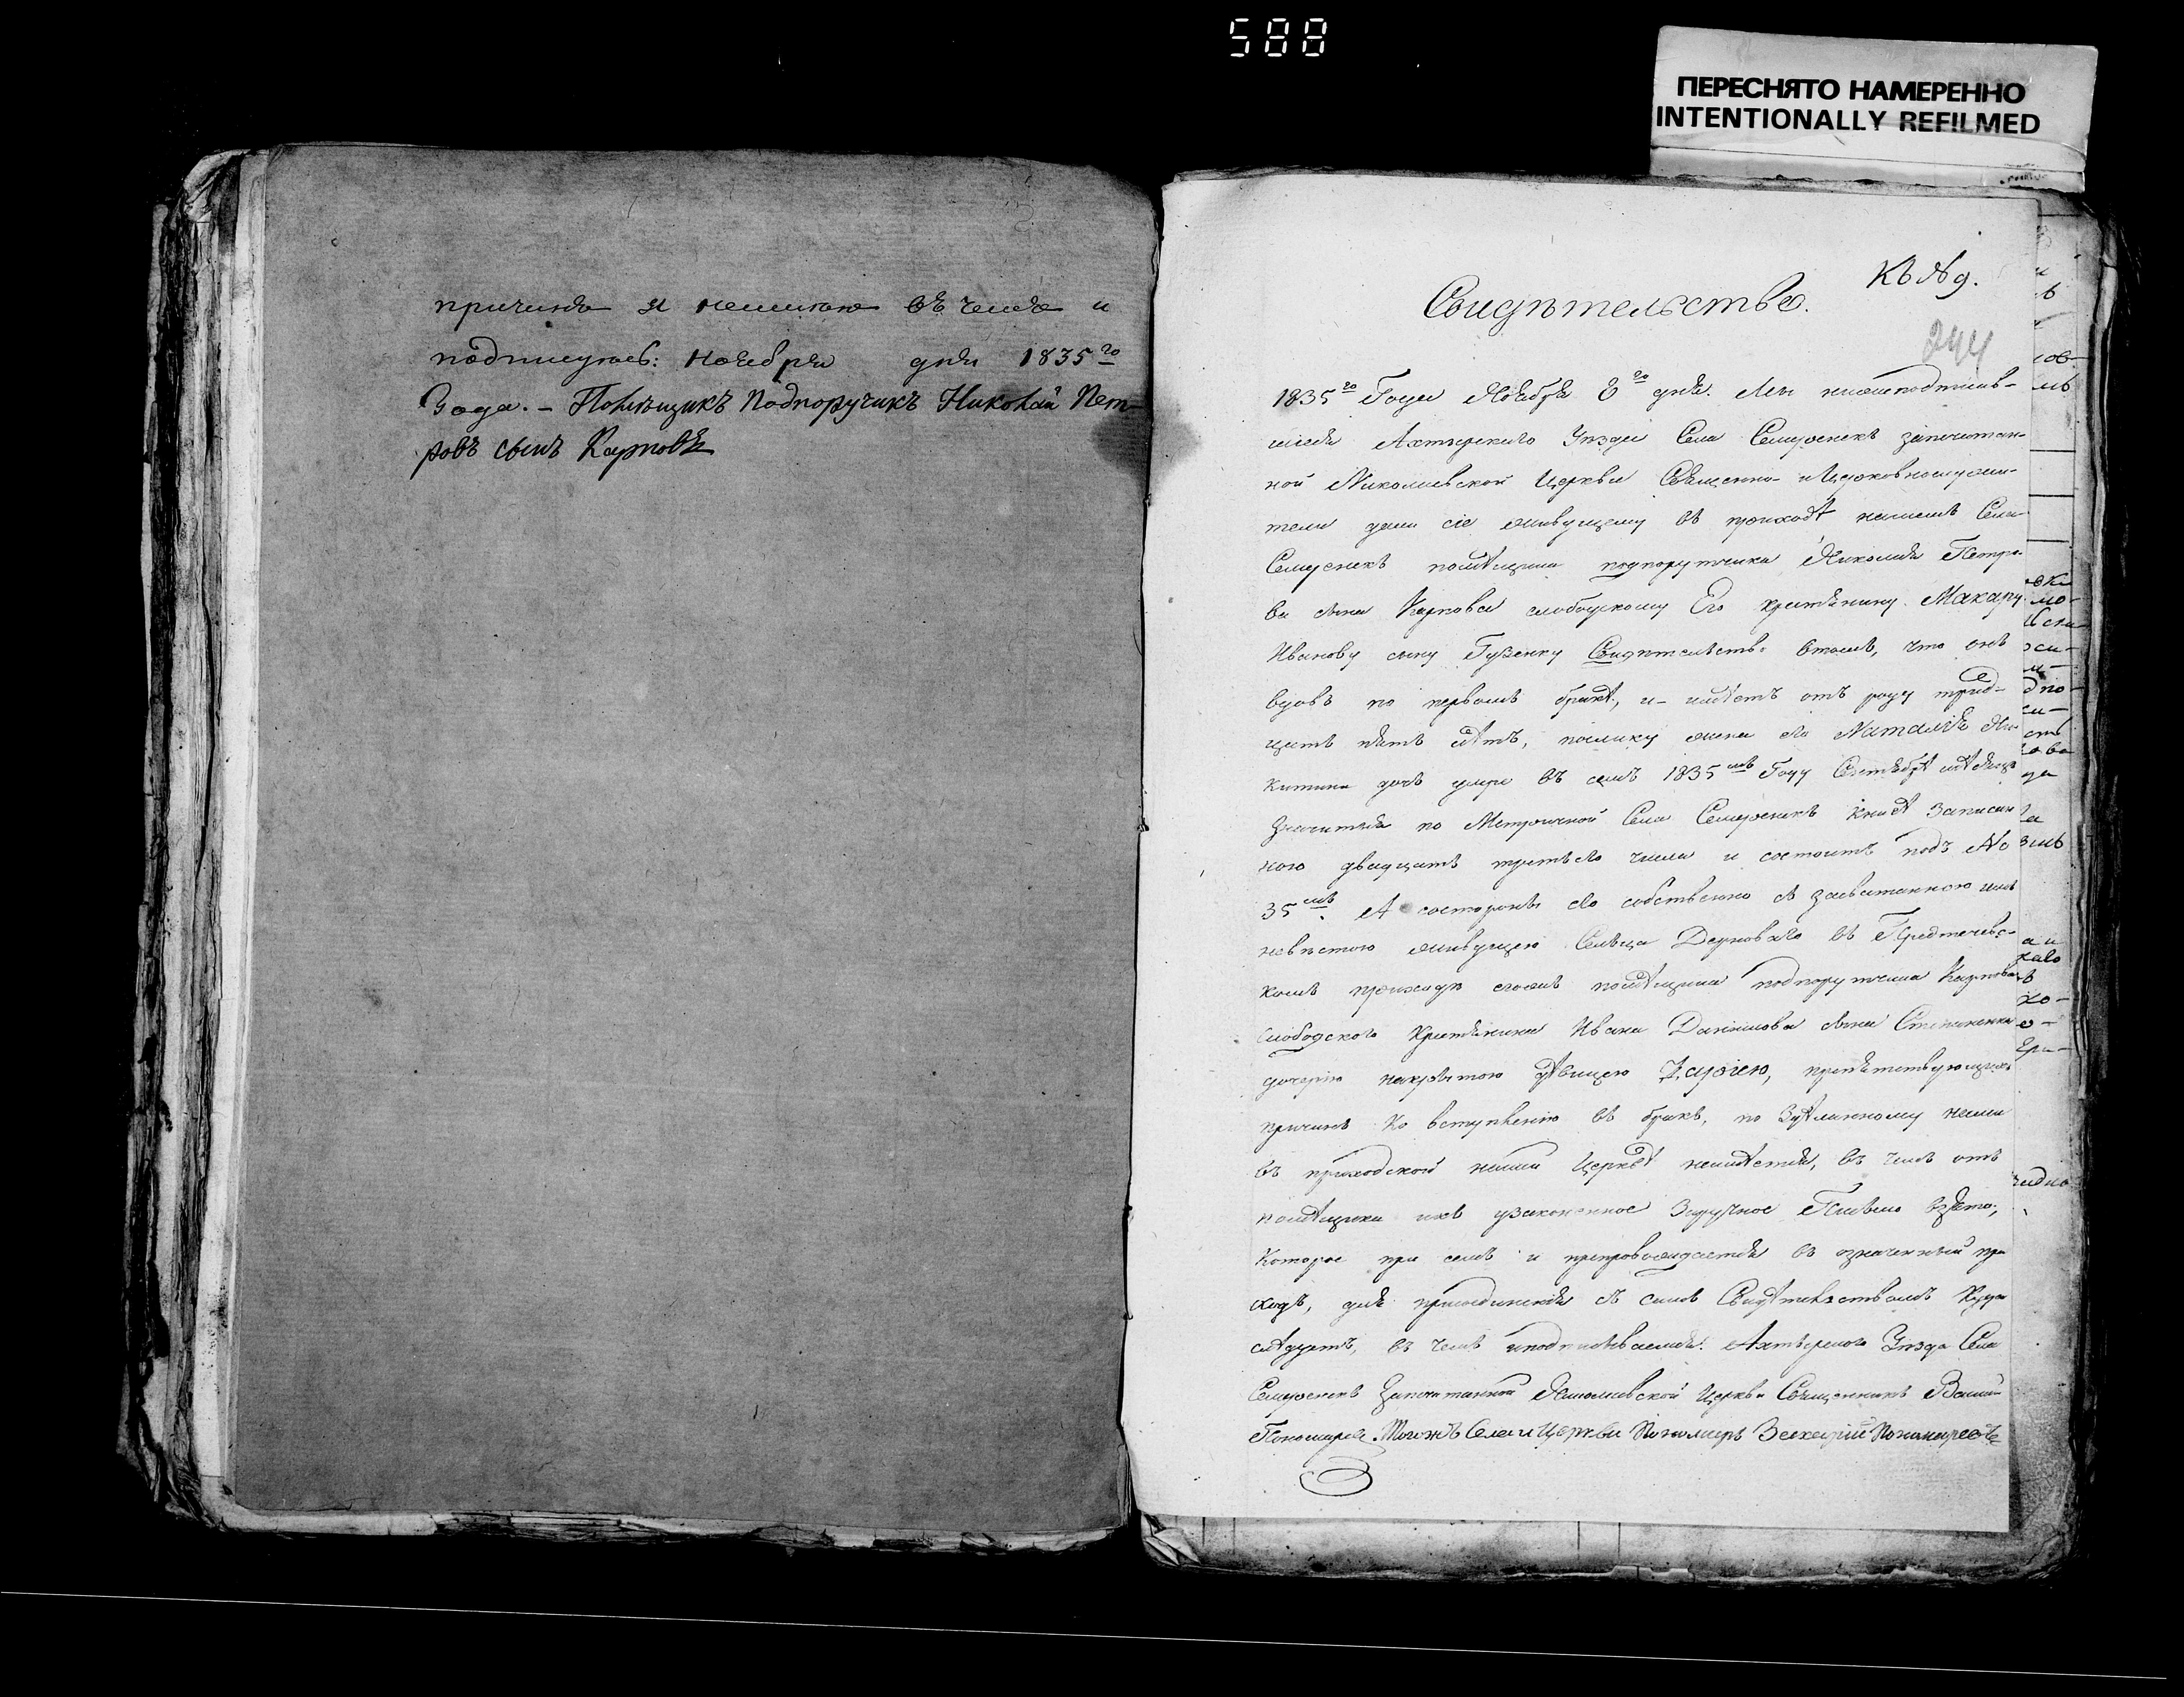 588
ПЕРЕСНЯТО НАМЕРЕННО
INTENTIONALLY REFILMED
причинъ я неимею въ чемъ и
подпишусь: Ноября дня 1835го
Года. – Помѣщикъ Подпоручикъ Николай Пет-
ровъ сынъ Карповъ
Къ № 9.
Свидѣтельство.
244
1835го Года Ноября 8го дня. Мы нижеподписав-
шіеся Ахтырскаго Уѣзда Села Семереникъ
ной Николаевской Церкви Священно- и Церковнослужи-
тели дали сіе живущему въ приходѣ нашемъ Села
Семереникъ помѣщика подпорутчика Николая Петро-
ва сына Карпова слободскому Его крестянину Макару
Иванову сыну Гузенку Свидѣтельство втомъ, что онъ
вдовъ по первомъ бракѣ, и имѣетъ отъ роду трид-
цать пять лѣтъ, поелику жена его Наталія Ни-
китина дочь умре въ семъ 1835мъ Году Сентября мѣсяца
Значится по Метричной Села Семереникъ книгѣ Записан
ного двадцать третьего числа и состоитъ подъ №
35мъ. А состороны его собственно съ засватанною имъ
невѣстою живущею Сельца Дерноваго въ Предтечевс-
комъ приходѣ тогожъ помѣщика подпорутчика Карпова
слободского Крестянина Ивана Данилова сына Степаненка
дочерію накрытою дѣвицею Даріею, препятствующихъ
причинъ Ко вступленію въ бракъ, по Здѣланному нами
въ приходской нашей Церквѣ неимѣется, въ чемъ отъ
помѣщика ихъ узаконенное Заручное Письмо взято,
Которое при семъ и препровождается въ означенный при
ходъ, для присоединенія съ симъ Свидѣтельствомъ Куда
слѣдуетъ, въ чемъ и подписываемся: Ахтырского Уѣзда Села
Семереникъ Николаевской Церкви Священникъ Василій
Пономаревъ. Тогожъ Села и Церкви Пономарь Захарій Пономаревъ